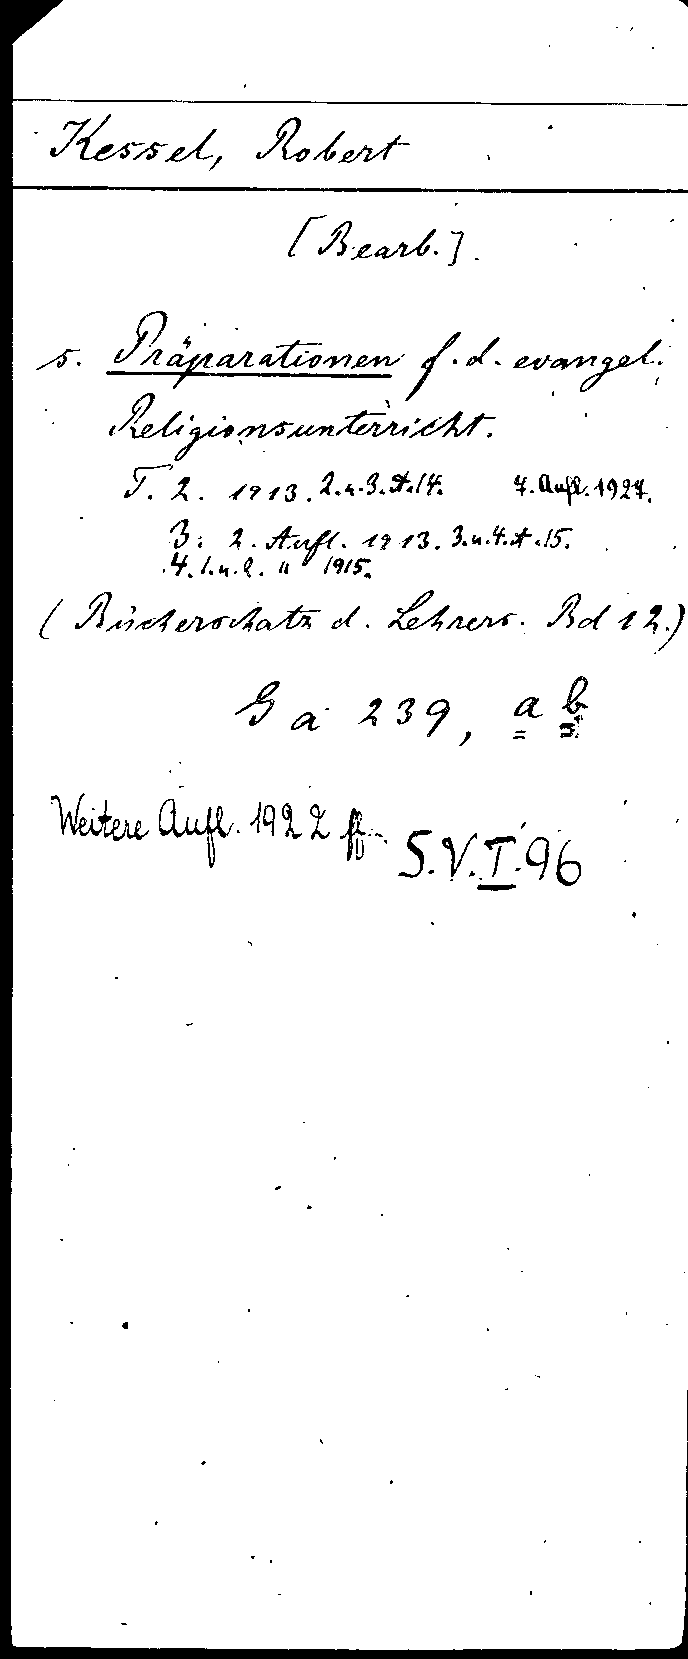 Kessel, Robert
[Bearb.].
s. Präparationen f. d. evangel.
Religionsunterricht.
T. 2. 1913. 2. u. 3. A. 14. 7. Aufl. 1927.
3: 2. Aufl. 1913. 3. u. 4. A. 15.
4. 1. u. 2. " 1915.
(Bücherschatz d. Lehrers. Bd 12.)
G a 239, a b
Weitere Aufl. 1922 ff. S.V.I.96